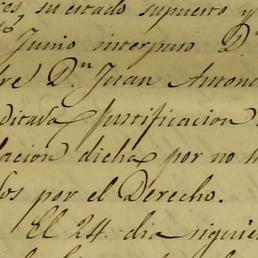 ces, su estado supuesto y
Junio interpuso D.ⁿ
dre D.ⁿ Juan Anton
ditada justificacion
lacion dicha por no h
dos por el Derecho.
El 24. dia siguie